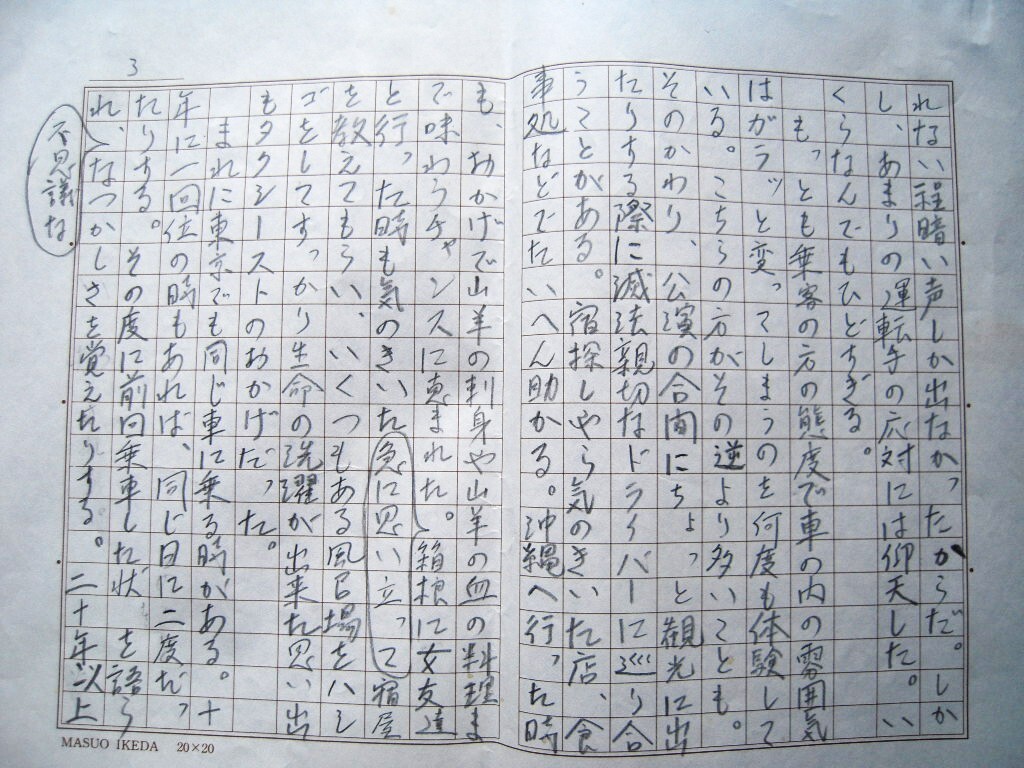 3
れない程暗い声しか出なかったからだ。しか
し、あまりの運転手の応対には仰天した。い
くらなんでもひどすぎる。
もっとも乗客の方の態度で車の内の雰囲気
はがラッと変ってしまうのを何度も体験して
いる。こちらの方がその逆より多いことも。
そのかわり、公演の合間にちょっと観光に出
たりする際に滅法親切なドライバーに巡り合
うことがある。宿探しやら気のきいた店、食
事処などでたいへん助かる。沖縄へ行った時
も、おかげで山羊の刺身や山羊の血の料理ま
で味わうチャンスに恵まれた。箱根に女友達
と行った時も気のきいた急に思い立って宿屋
を教えてもらい、いくつもある風呂場をハシ
ゴをしてすっかり生命の洗濯が出来た思い出
もタクシーストのおかげだった。
まれに東京でも同じ車に乗る時がある。十
年に一回位の時もあれば、同じ日に二度だっ
たりする。その度に前回乗車した状 を語ら
れ、なつかしさを覚えたりする。二十年以上
不思議な
MASUO IKEDA 20×20